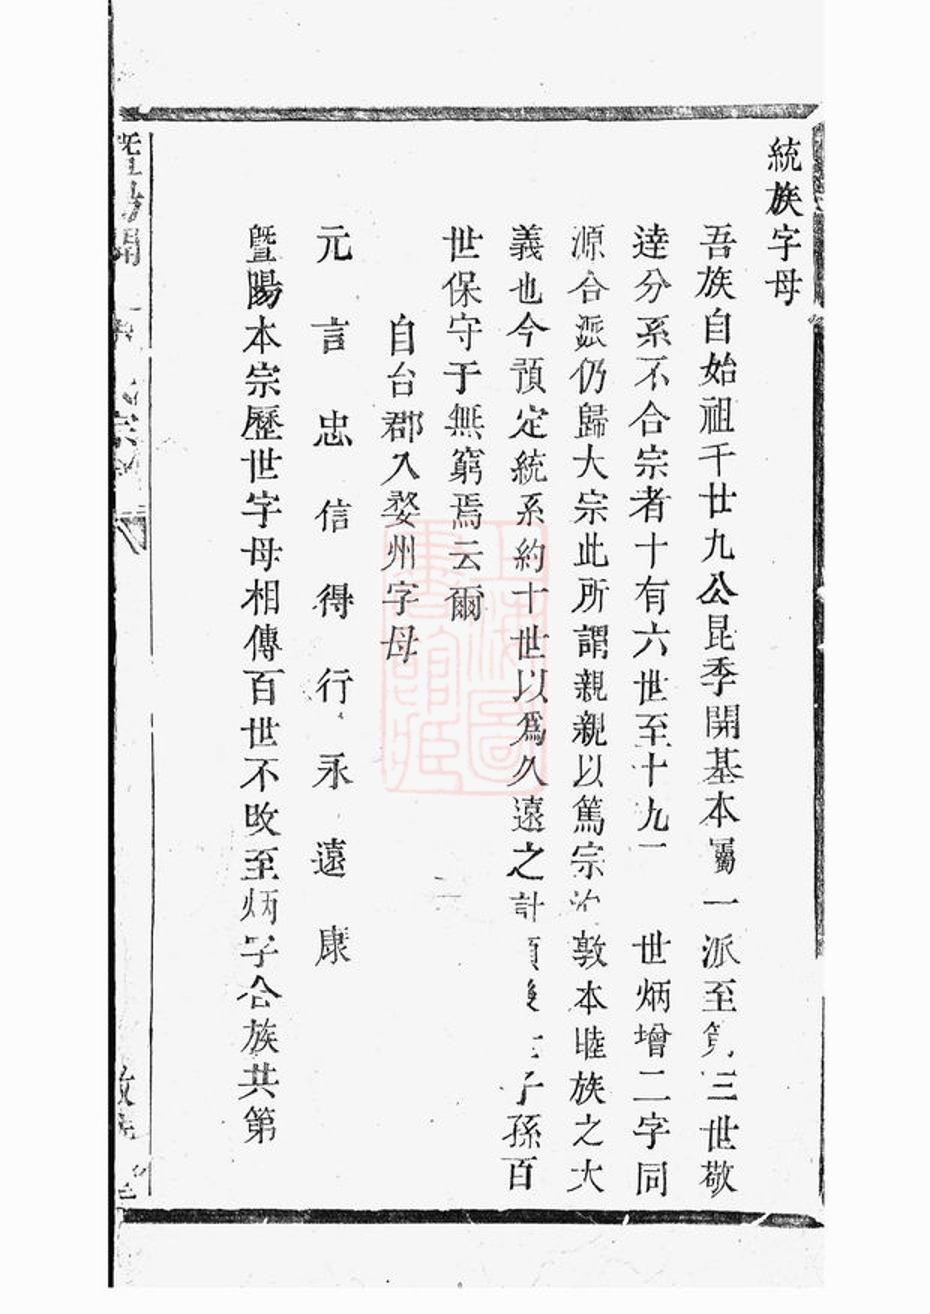 統族字母
吾族自始祖千廿九公昆季開基本屬一派至第三世敬
逹分系不合宗者十有六世至十九 世炳增二字同
源合派仍歸大宗此所謂親親以篤宗 敦本睦族之大
義也今預定統系約十世以爲久遠之計 子孫百
世保守于無窮焉云爾
自台郡入婺州字母
元言忠信得行永遠康
曁陽本宗歷世字母相傳百世不改至炳字合族共第
上海圖書館藏